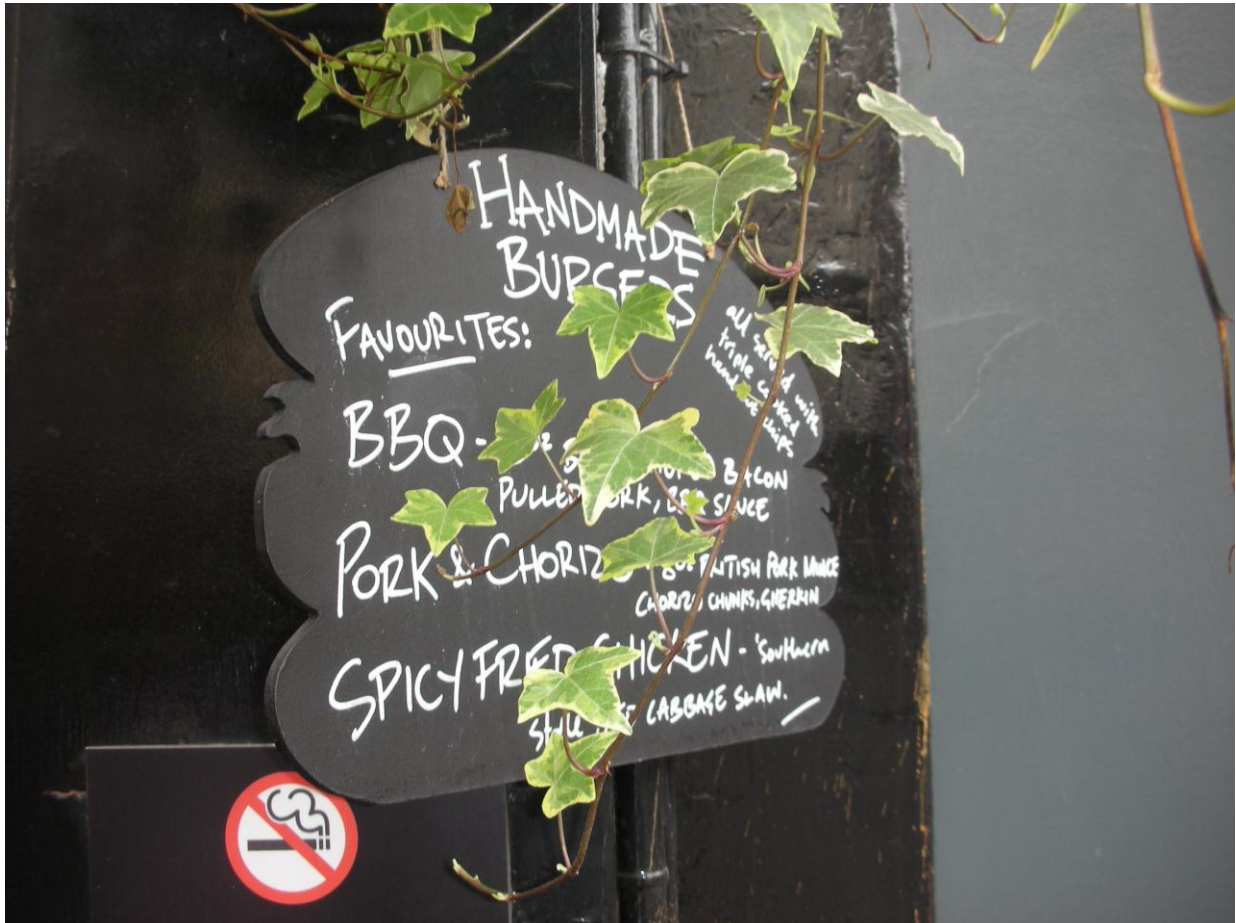 HANDMADE
BURGERS
FAVOURITES:
all served with
triple cooked
BBQ -
BACON
PULLED PORK, BBQ SAUCE
PORK & CHORIZO - 8oz BRITISH PORK MINCE
CHORIZO CHUNKS, GHERKIN
SPICY FRIED CHICKEN - 'Southern
Style CABBAGE SLAW.